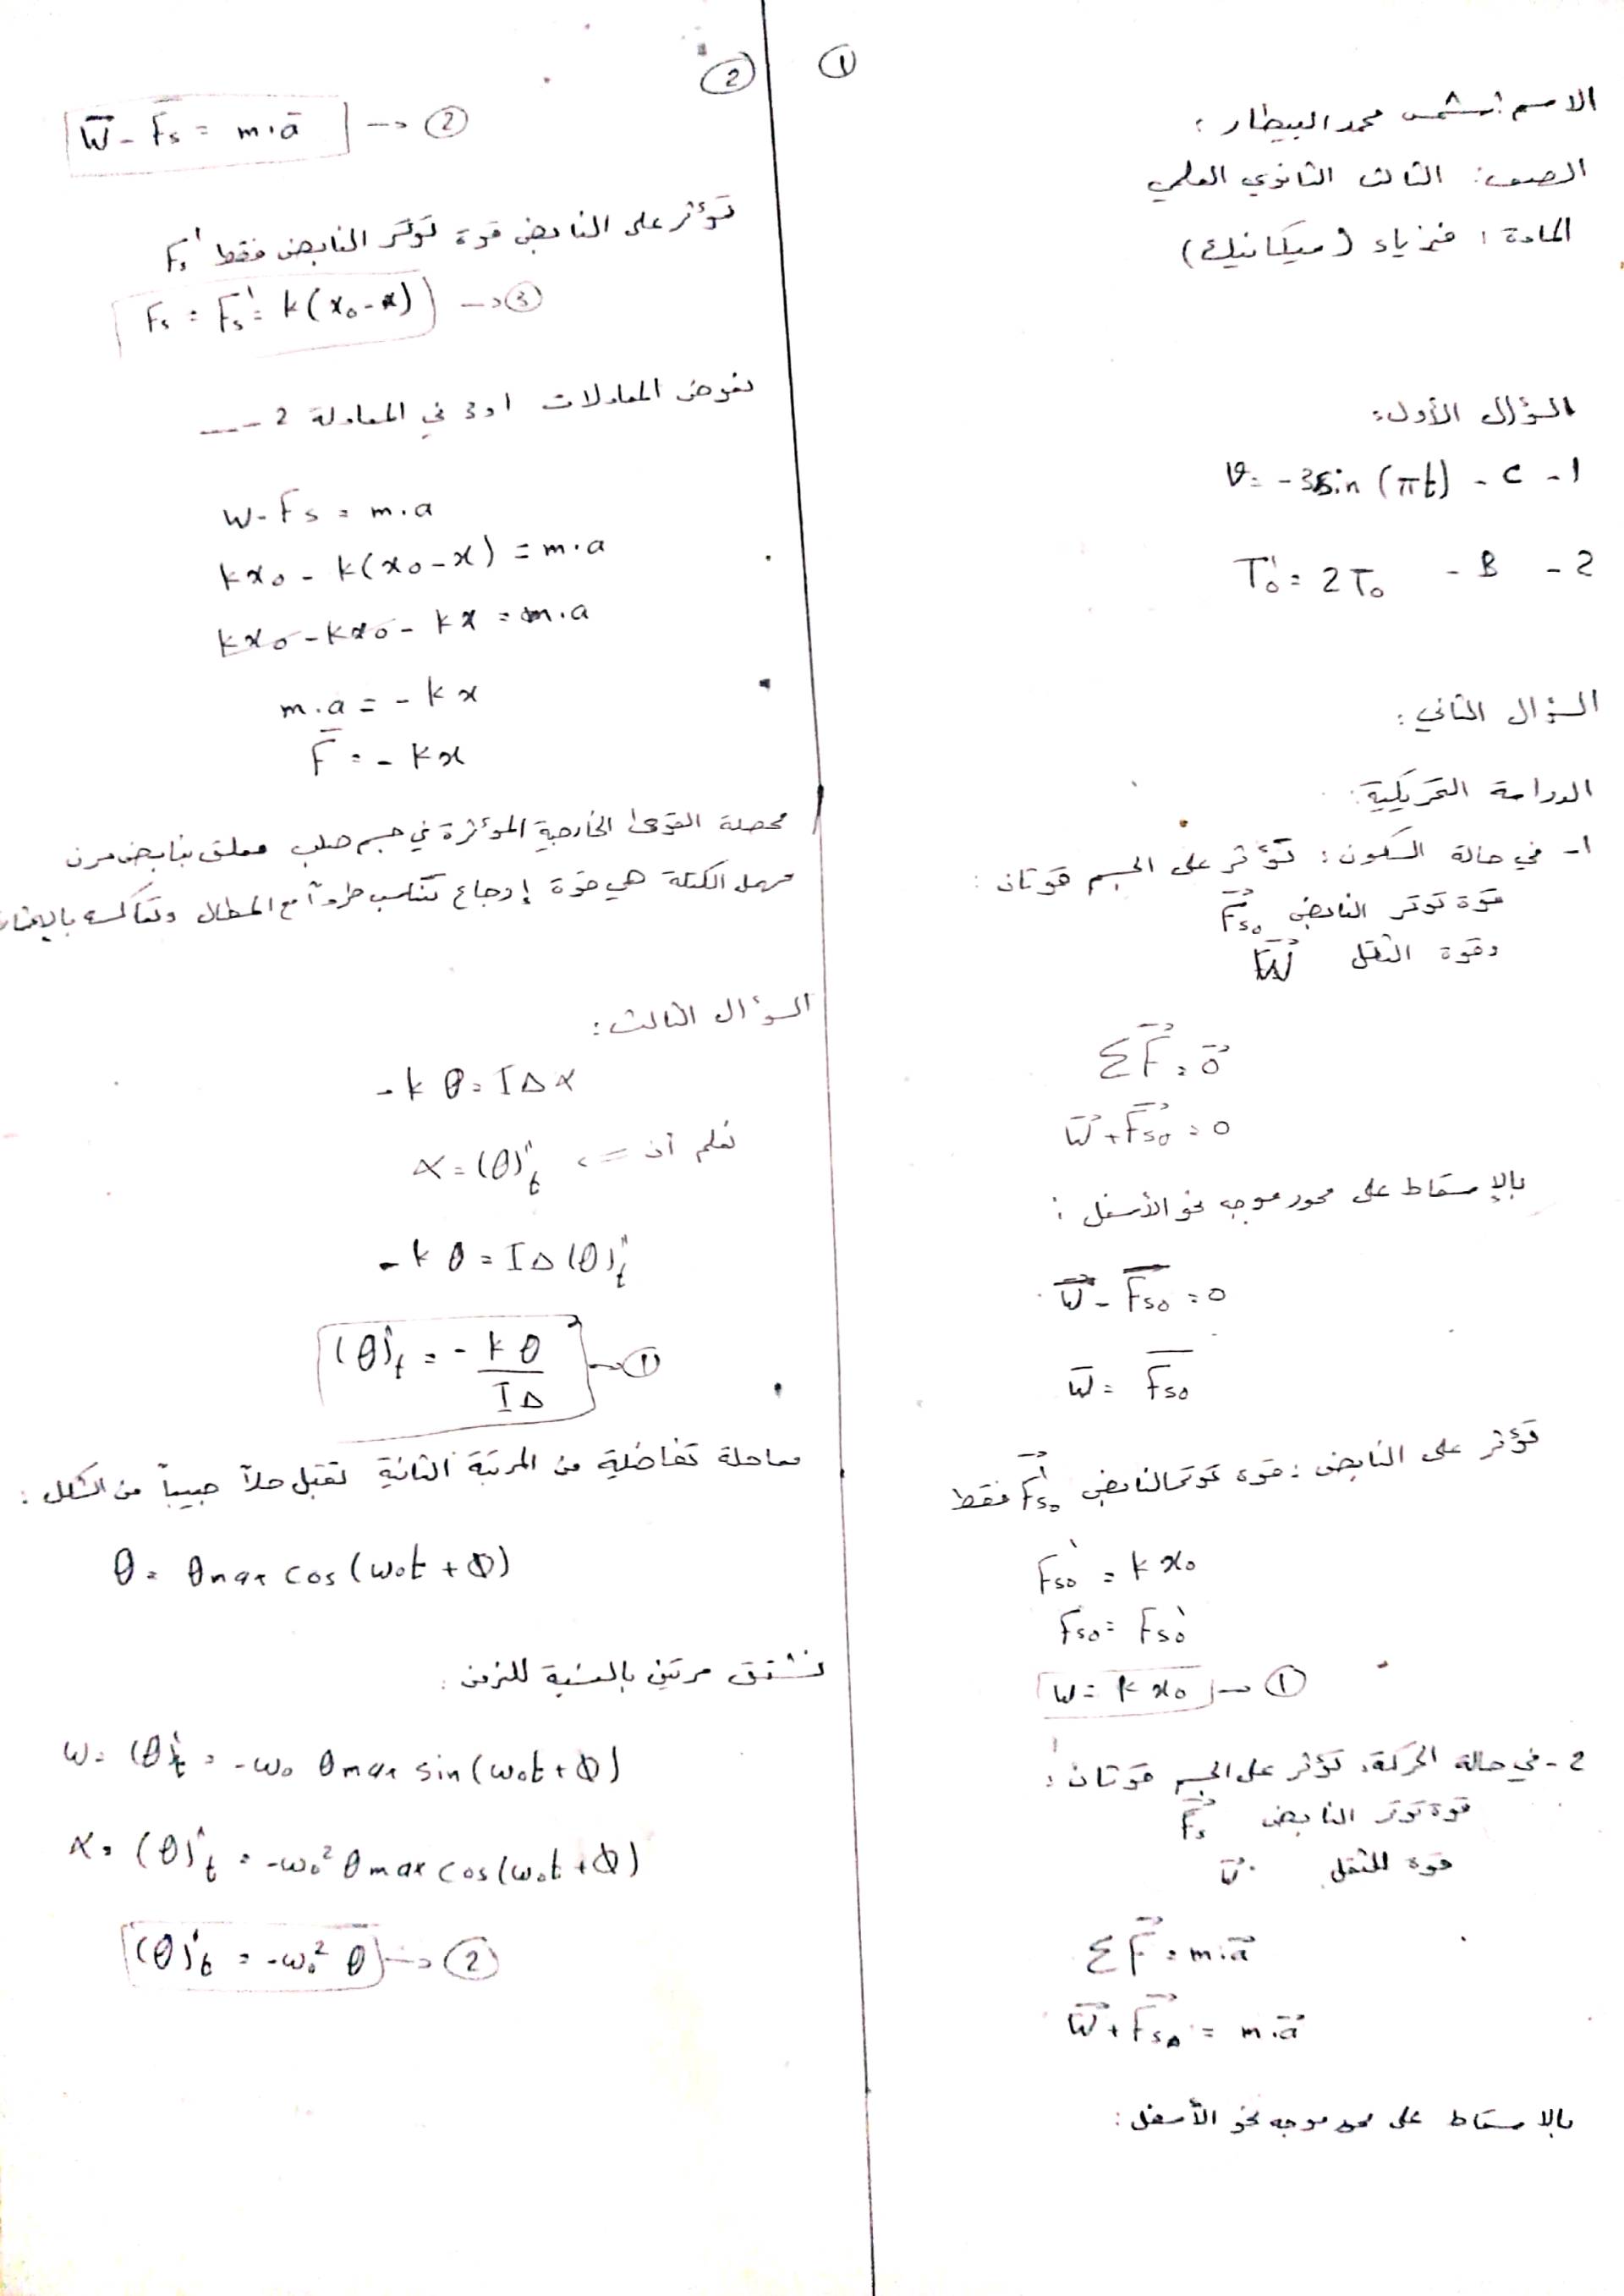 ①
الاسم: شمس محمد البيطار :
الصف: الثالث الثانوي العلمي
المادة: فيزياء (ميكانيك)
السؤال الأول:
1 - C - v = -3 sin (πt)
2 - B - T'₀ = 2T₀
السؤال الثاني:
الدراسة التحريكية:
1- في حالة السكون: تؤثر على الجسم قوتان:
قوة توتر النابض F⃗s₀
وقوة الثقل W⃗
ΣF⃗ = 0⃗
W⃗ + F⃗s₀ = 0
بالإسقاط على محور موجه نحو الأسفل:
W̅ - F̅s₀ = 0
W̅ = F̅s₀
تؤثر على النابض: قوة توتر النابض F⃗'s₀ فقط
F's₀ = k x₀
Fs₀ = F's₀
W = k x₀ → ①
2- في حالة الحركة، تؤثر على الجسم قوتان:
قوة توتر النابض F⃗s
قوة الثقل
ΣF⃗ = m.a⃗
W⃗ + F⃗s₀ = m.a⃗
بالاسقاط على محور موجه نحو الأسفل:
②
W̅ - F̅s = m.a̅ → ②
تؤثر على النابض قوة توتر النابض فقط F's
Fs = F's = k(x₀ - x) → ③
نعوض المعادلات 1 و 3 في المعادلة 2 ----
W - Fs = m.a
kx₀ - k(x₀ - x) = m.a
kx₀ - kx₀ - kx = m.a
m.a = - kx
F̅ = - kx
محصلة القوى الخارجية المؤثرة في جسم صلب معلق بنابض مرن
مهمل الكتلة هي قوة إرجاع تتناسب طرداً مع المطال وتعاكسه بالإشارة
السؤال الثالث:
-k θ = IΔ α
نعلم أن => α = (θ)''t
-k θ = IΔ (θ)''t
(θ)''t = - kθ / IΔ → ①
معادلة تفاضلية من المرتبة الثانية تقبل حلاً جيبياً من الشكل:
θ = θmax cos(ω₀t + Φ)
نشتق مرتين بالنسبة للزمن:
ω = (θ)'t = -ω₀ θmax sin(ω₀t + Φ)
α = (θ)''t = -ω₀² θmax cos(ω₀t + Φ)
(θ)''t = -ω₀² θ → ②